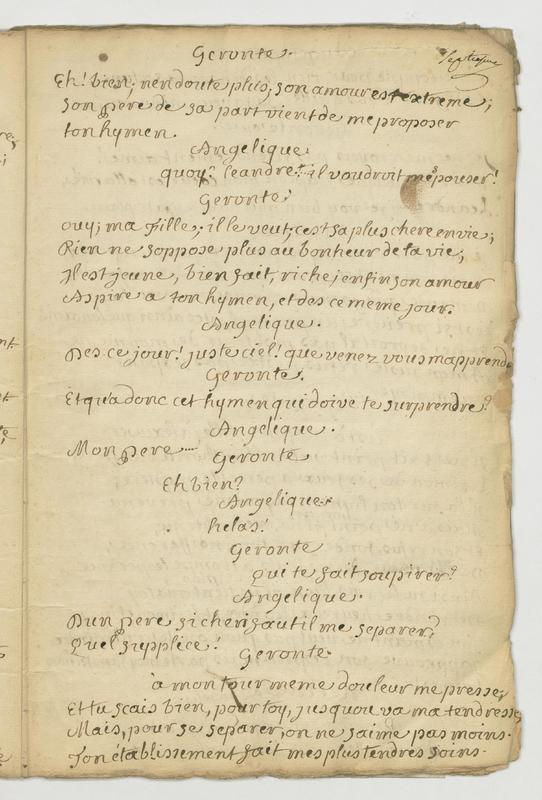 Septiesme
Geronte.
Eh! bien, n'en doute plus, son amour est extreme;
Son pere de sa part vient de me proposer
ton hymen.
Angelique
quoy? leandre? il voudroit m'epouser!
Geronte.
ouy; ma fille, il le veut; c'est sa plus chere envie;
Rien ne s'oppose plus au bonheur de ta vie,
Il est jeune, bien fait, riche; enfin son amour
Aspire a ton hymen, et des ce meme jour.
Angelique.
Des ce jour! juste ciel! que venez vous m'apprendre
Geronte.
Et qu'a donc cet hymen qui doive te surprendre?
Angelique.
Mon pere....
Geronte
Eh bien?
Angelique.
helas!
Geronte
Qui te fait soupirer?
Angelique.
D'un pere si cheri faut il me separer?
Quel supplice!
Geronte.
à mon tour meme douleur me presse,
Et tu scais bien, pour toy, jusqu'ou va ma tendresse,
Mais, pour se separer, on ne s'aime pas moins.
Ton établissement fait mes plus tendres soins.